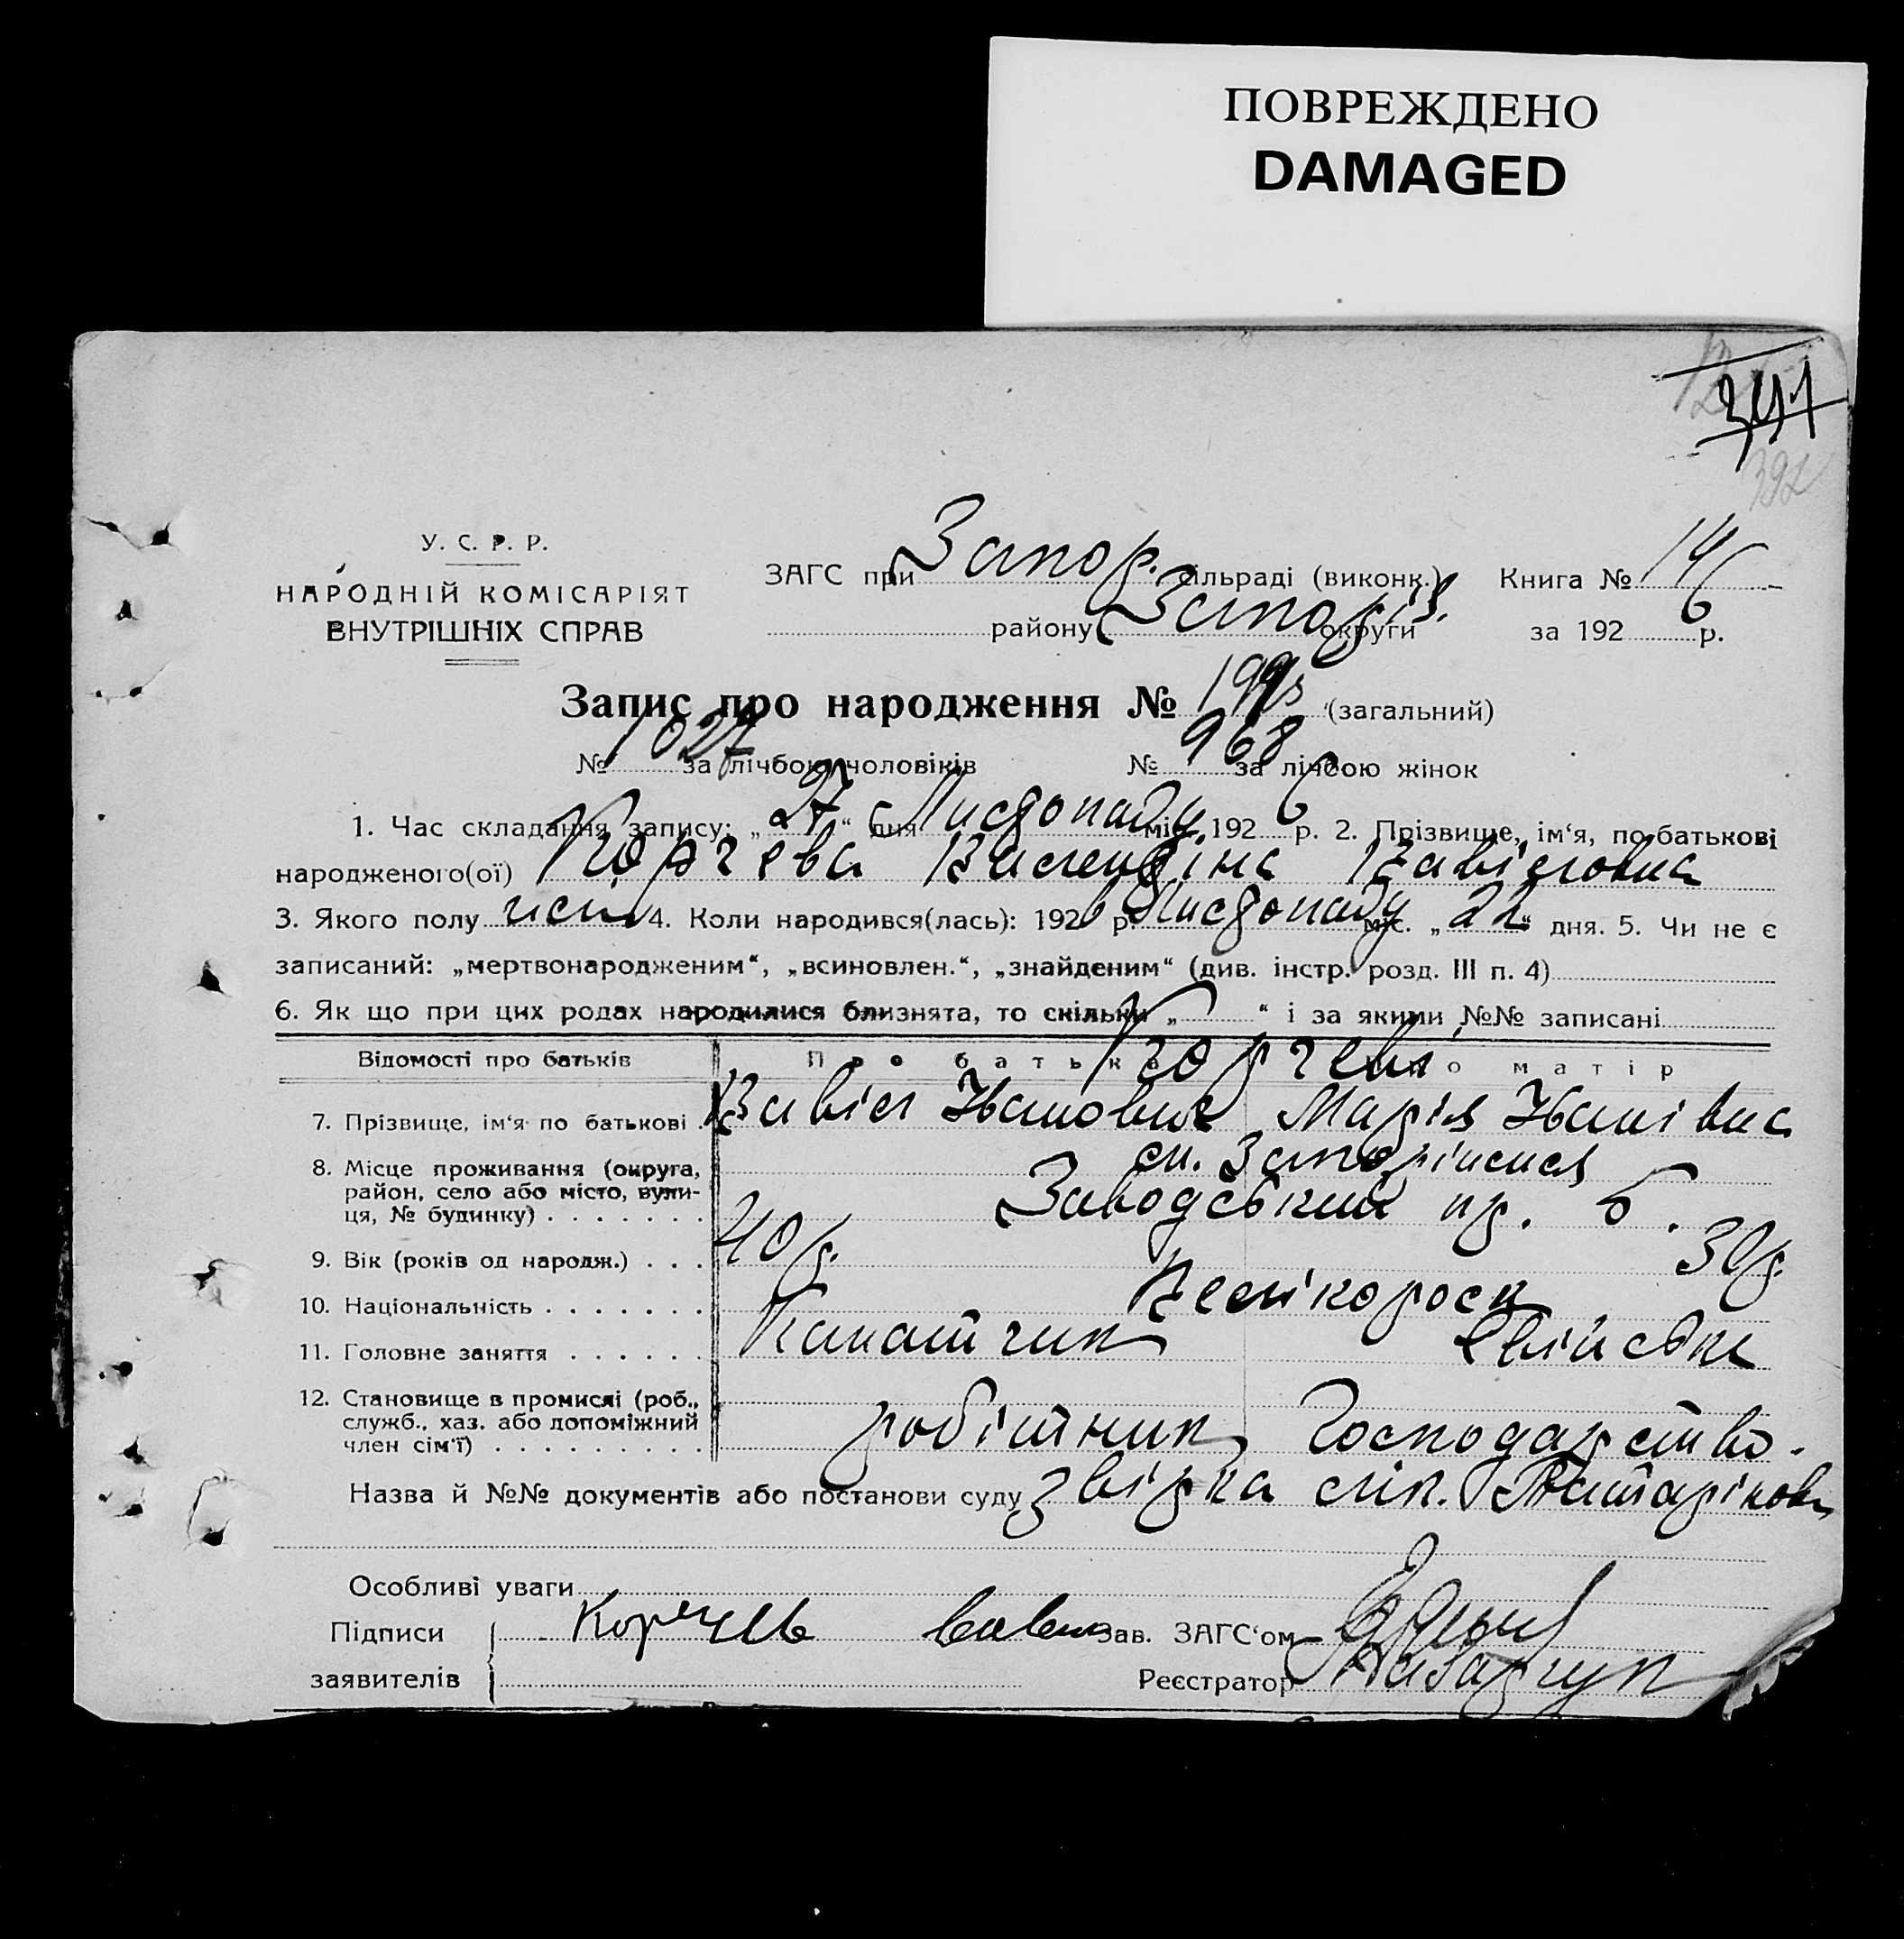 ПОВРЕЖДЕНО
DAMAGED
341
392
У. С. Р. Р.
НАРОДНІЙ КОМІСАРІЯТ
ВНУТРІШНІХ СПРАВ
ЗАГС при Запор. сільраді (виконк.) Книга № 14
району Запоріз. округи за 1926 р.
Запис про народження № 1995 (загальний)
№ 1027 за лічбою чоловіків № 968 за лічбою жінок
1. Час складання запису: „27“ дня Листопаду міс. 1926 р. 2. Прізвище, ім‘я, по батькові
народженого(ої) Корчева Валентіна Вавіловна
3. Якого полу жен 4. Коли народився(лась): 1926 р. Листопаду міс. „22“ дня. 5. Чи не є
записаний: „мертвонародженим“, „всиновлен.“, „знайденим“ (див. інстр. розд. III п. 4)
6. Як що при цих родах народилися близнята, то скільки „ “ і за якими №№ записані
Відомості про батьків Про батька Про матір
Корчеви
7. Прізвище, ім‘я по батькові Вавіл Іванович Марія Іванівна
8. Місце проживання (округа, район, село або місто, вули-ця, № будинку) ст. Запоріжжя
Заводський пр. 5.
9. Вік (років од народж.) 40 р. 30 р.
10. Національність Велікорос
11. Головне заняття Канатчик
12. Становище в промислі (роб., служб., хаз. або допоміжний член сім‘ї) робітник Господарство.
Назва й №№ документів або постанови суду звірка лік.
Особливі уваги
Підписи Корчевь Вавил Зав. ЗАГС‘ом
заявителів Реєстратор